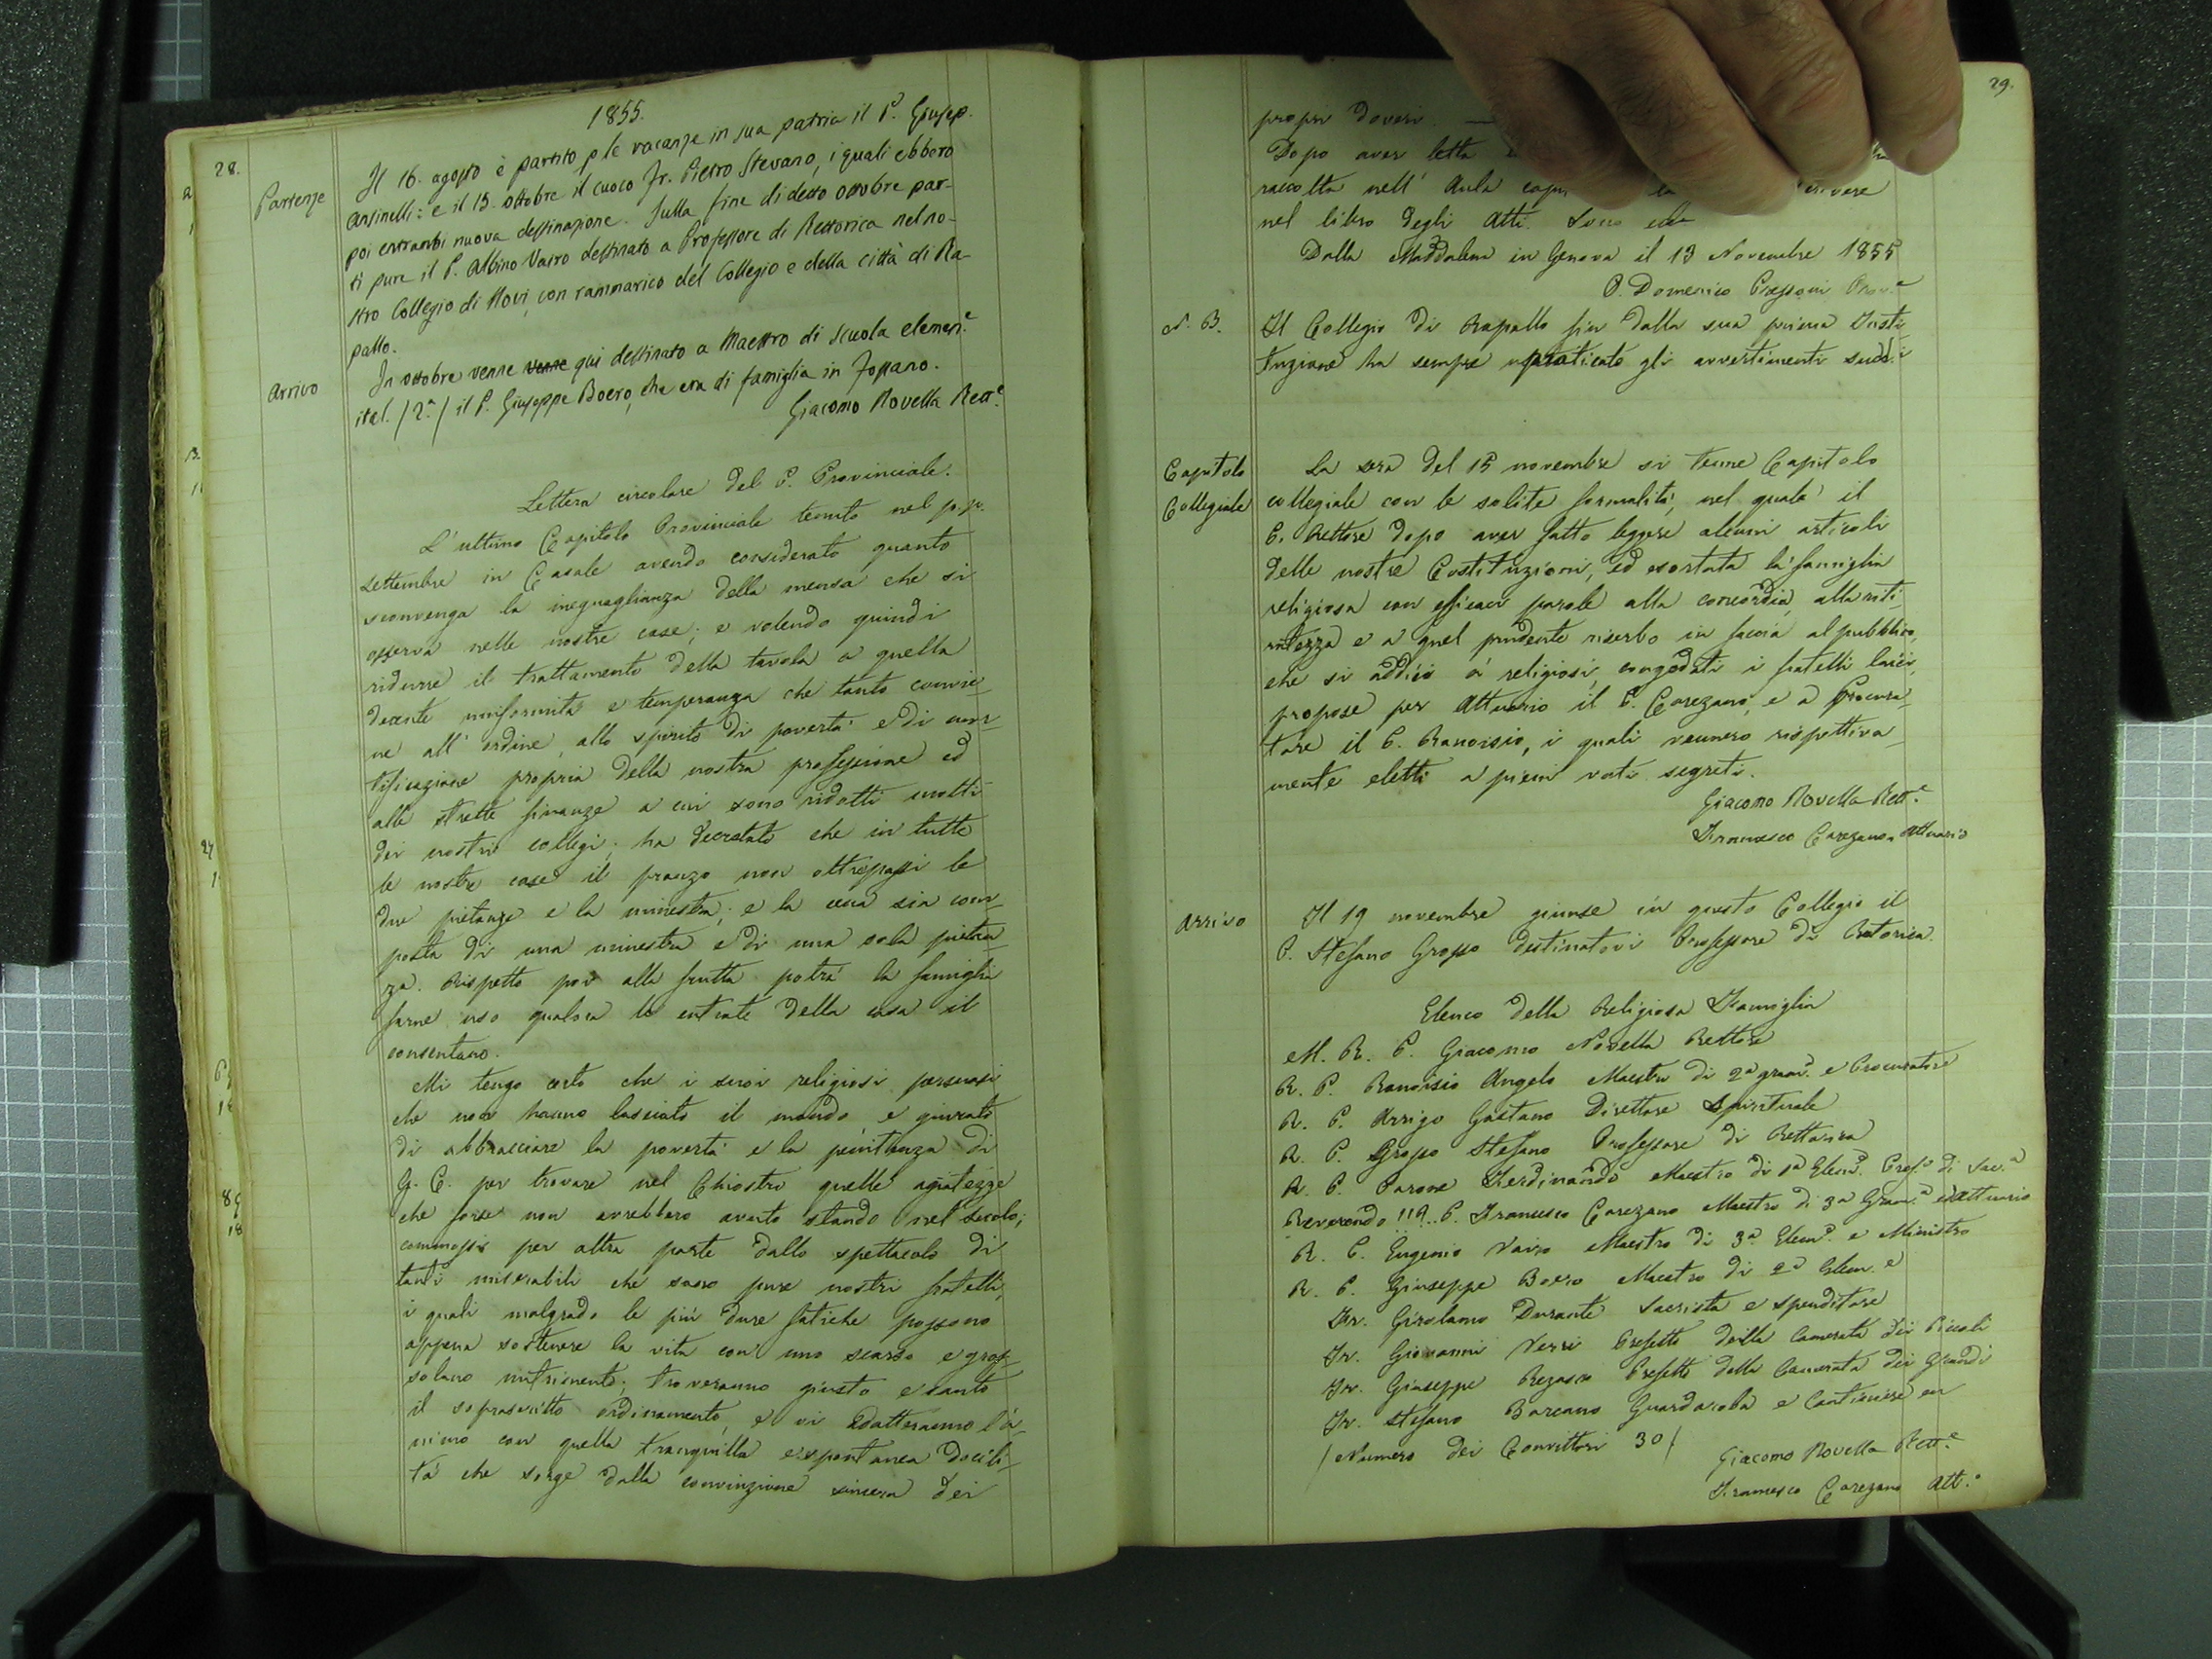 28.
1855.
Partenze
Il 16. agosto è partito p le vacanze in sua patria il P. Giusep.
Ansinelli: e il 15. ottobre il cuoco Fr. Pietro Stevano, i quali ebbero
poi entrambi nuova destinazione. Sulla fine di detto ottobre par-
tì pure il P. Albino Vairo destinato a Professore di Rettorica nel no-
stro Collegio di Novi, con rammarico del Collegio e della città di Ra-
pallo.
Arrivo
In ottobre venne venne qui destinato a Maestro di scuola elemen.e
ital. (2.a) il P. Giuseppe Boero, che era di famiglia in Fossano.
Giacomo Novella Rett.e
Lettera circolare del P. Provinciale.
L'ultimo Capitolo Provinciale tenuto nel p.p.
settembre in Casale avendo considerato quanto
sconvenga la ineguaglianza della mensa che si
osserva nelle nostre case; e volendo quindi
ridurre il trattamento della tavola a quella
decente uniformità e temperanza che tanto convie-
ne all'ordine, allo spirito di povertà e di mor-
tificazione propria della nostra professione ed
alle strette finanze a cui sono ridotti molti
dei nostri collegi; ha decretato che in tutte
le nostre case il pranzo non oltrepassi le
due pietanze e la minestra; e la cena sia com-
posta di una minestra e di una sola pietan-
za. Rispetto poi alla frutta potrà la famiglia
farne uso qualora le entrate della casa il
consentano.
Mi tengo certo che i suoi religiosi persuasi
che non hanno lasciato il mondo e giurato
di abbracciare la povertà e la penitenza di
G. C. per trovare nel Chiostro quelle agiatezze
che forse non avrebbero avuto stando nel secolo;
commossi per altra parte dallo spettacolo di
tanti miserabili che sono pure nostri fratelli,
i quali malgrado le più dure fatiche possono
appena sostenere la vita con uno scarso e gros-
solano nutrimento; troveranno giusto e santo
il soprascritto ordinamento, e vi adatteranno l'a-
nimo con quella tranquilla e spontanea docili-
tà che sorge dalla convinzione sincera dei
29.
propri doveri. —
Dopo aver letta
raccolta nell'Aula
nel libro degli Atti.
Dalla Maddalena in Genova il 13 Novembre 1855
P. Domenico Pressoni Prov.e
N. B.
Il Collegio di Rapallo fin dalla sua prima Insti-
tuzione ha sempre praticato gli avvertimenti sudd.i
Capitolo
Collegiale
La sera del 15 novembre si tenne Capitolo
collegiale con le solite formalità, nel quale il
P. Rettore dopo aver fatto leggere alcuni articoli
delle nostre Costituzioni, ed esortata la famiglia
religiosa con efficaci parole alla concordia, alla riti-
ratezza e a quel prudente riserbo in faccia al pubblico,
che si addice a' religiosi, congedati i fratelli laici,
propose per Attuario il P. Carezano, e a Procura-
tore il P. Ranoisio, i quali vennero rispettiva-
mente eletti a pieni voti segreti.
Giacomo Novella Rett.e
Francesco Carezano Attuario
Arrivo
Il 19 novembre giunse in questo Collegio il
P. Stefano Grosso destinatovi Professore di Retorica.
Elenco della Religiosa Famiglia
M. R. P. Giacomo Novella Rettore
R. P. Ranoisio Angelo Maestro di 2a gram. e Procuratore
R. P. Arrigo Gaetano Direttore Spirituale
R. P. Grosso Stefano Professore di Rettorica
R. P. Parone Ferdinando Maestro di 1a Elem.
Reverendo!! R. P. Francesco Carezano Maestro di 3a Gram.a ed Attuario
R. P. Eugenio Vairo Maestro di 3a Elem.e e Ministro
R. P. Giuseppe Boero Maestro di 2a Elem.e
Fr. Girolamo Durante Sacrista e Spenditore
Fr. Giovanni Nervi Prefetto della Camerata dei Piccoli
Fr. Giuseppe Regazzo Prefetto della Camerata dei Grandi
Fr. Stefano Barcano Guardaroba e Cantiniere
(Numero dei Convittori 30)
Giacomo Novella Rett.e
Francesco Carezano Att.o